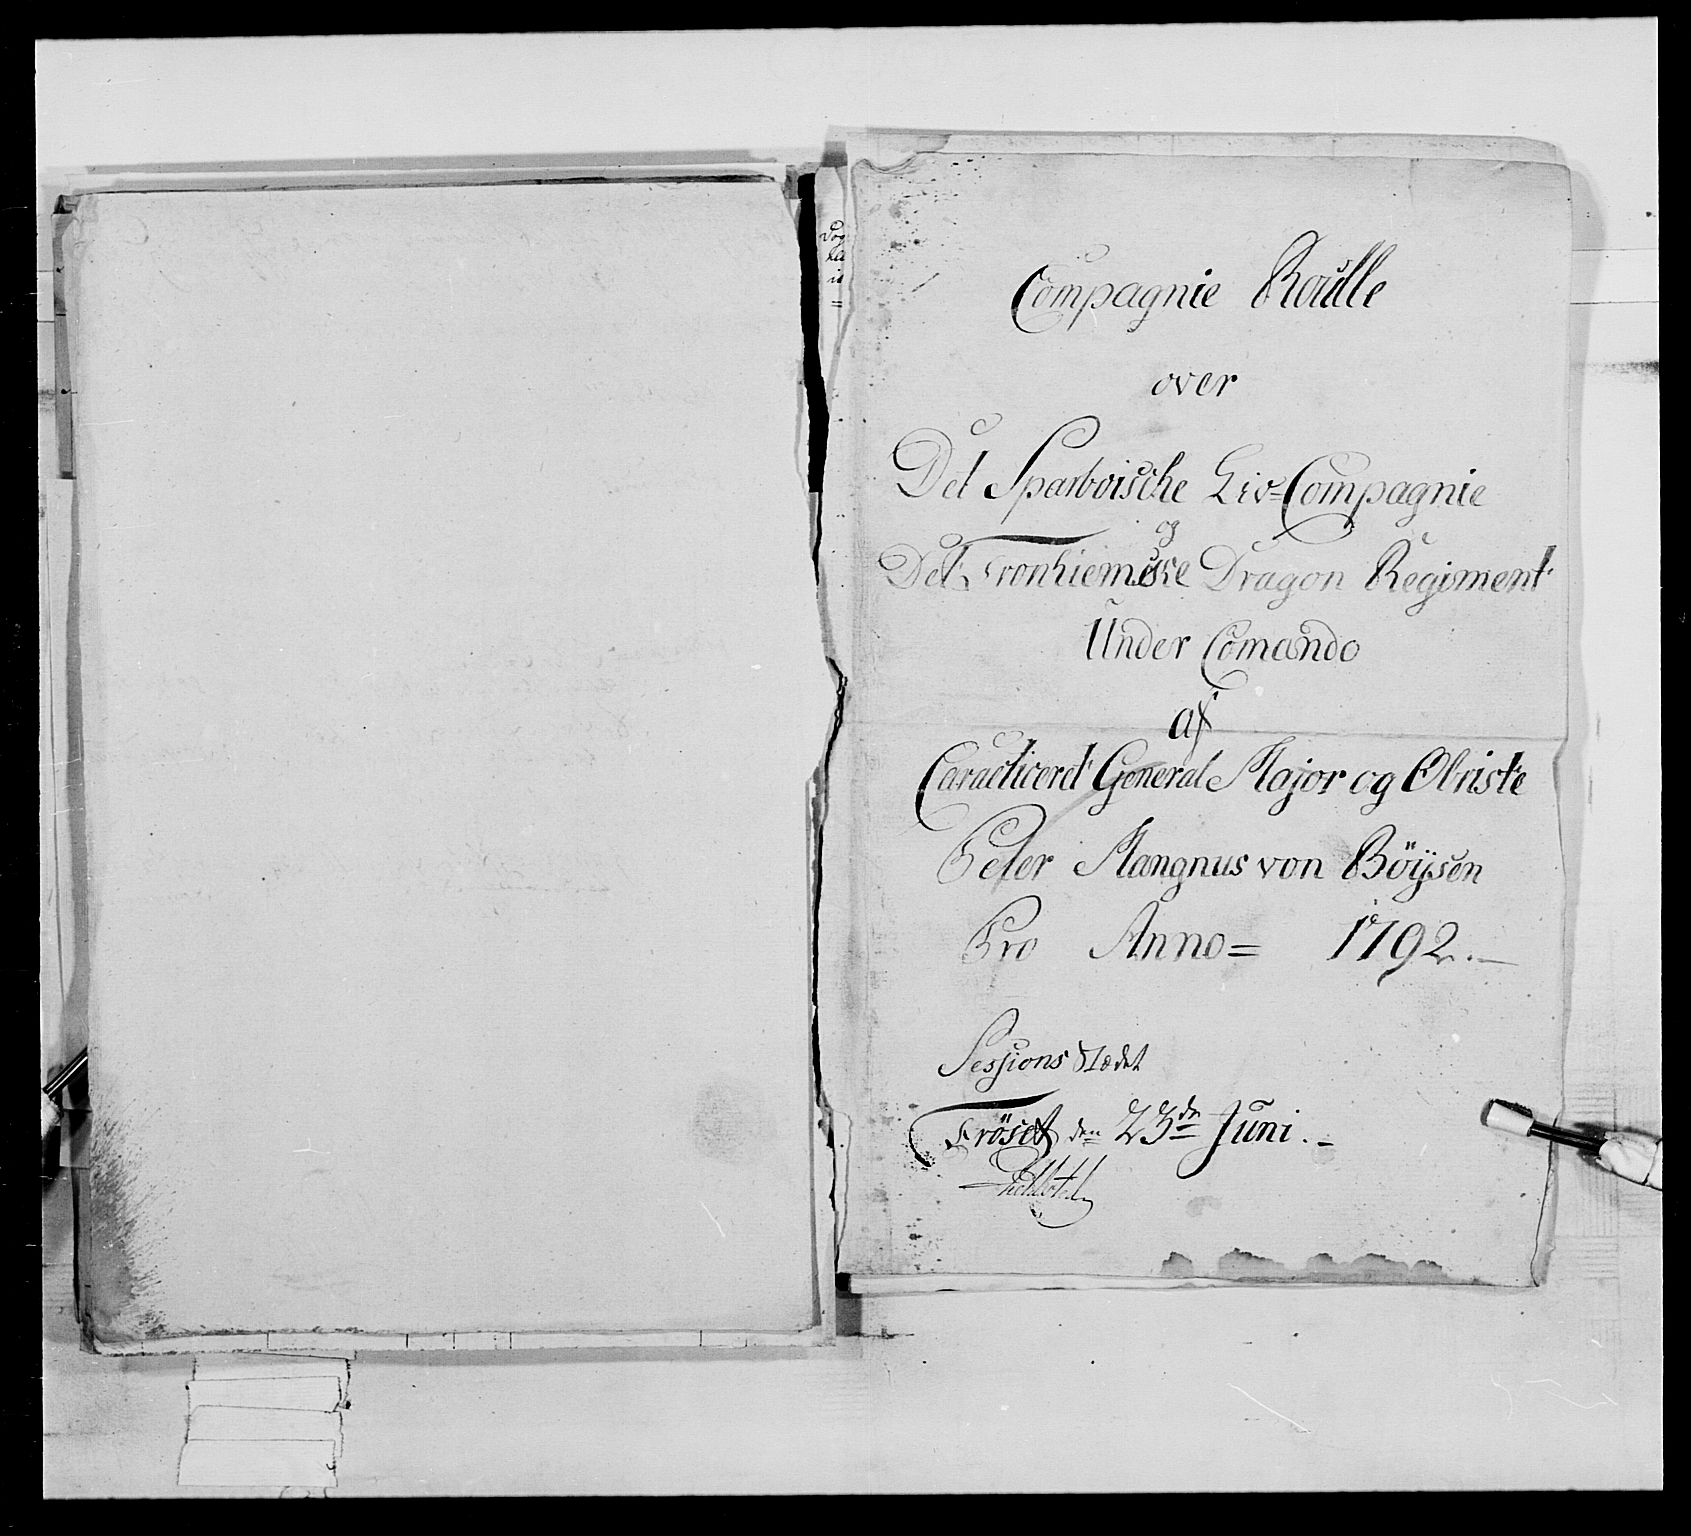 Compagnie Roulle
over
Det Sparboische Liv=Compagnie
og
Det Tronhiemske Dragon Regiment
Under Comando
af
Caracticerd General Major og Obriste
Peter Mangnus von Böÿsen
Pro Anno= 1792.—
Sessions Stædet
Fröset den 23de Juni.-